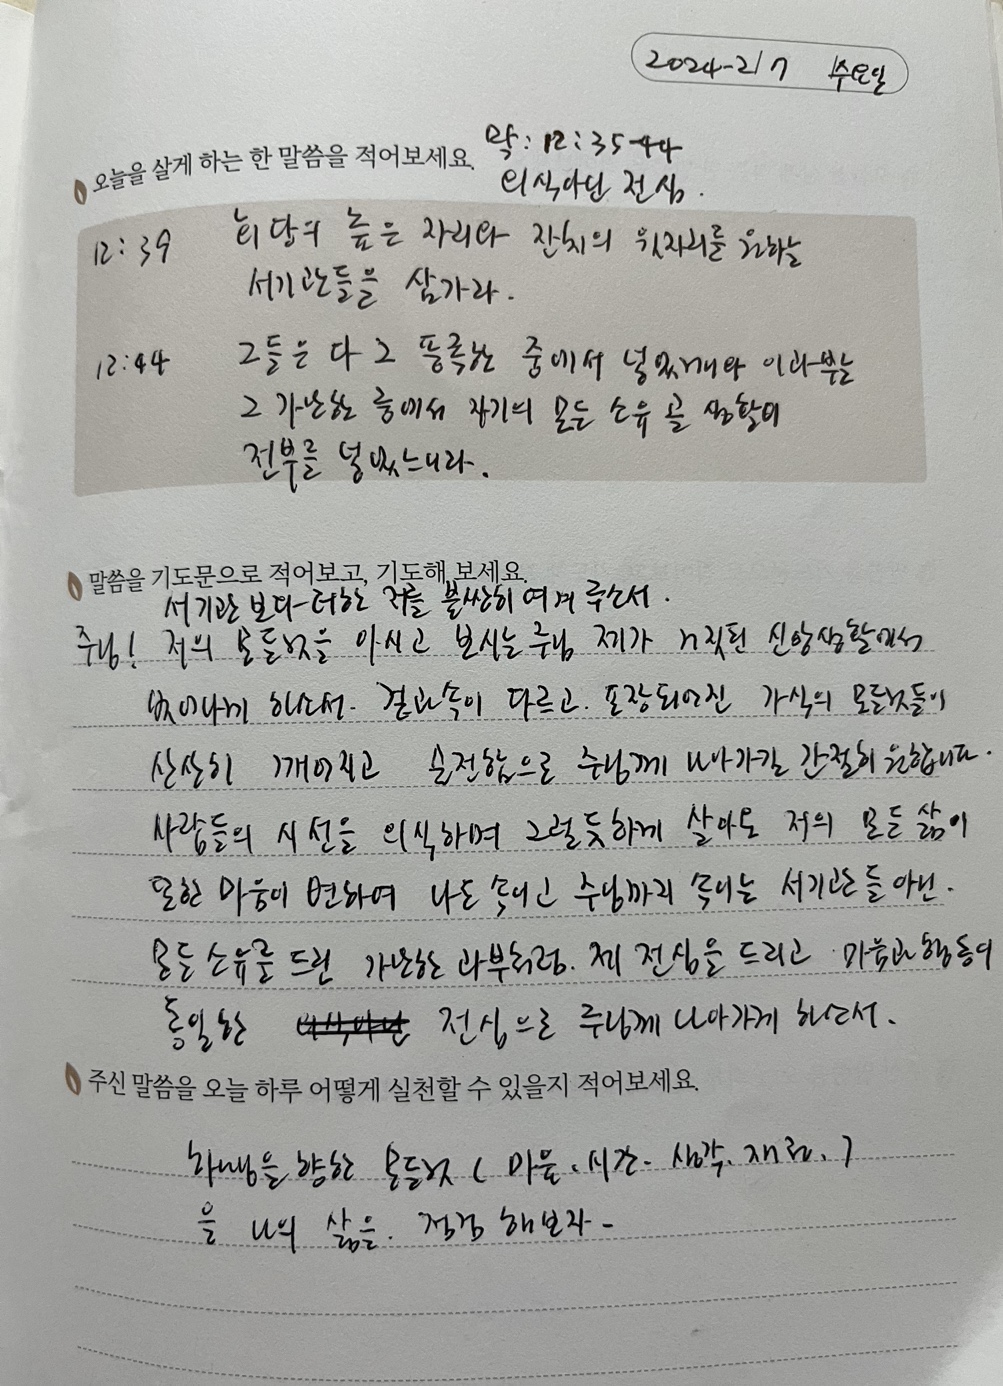 2024-2/7 수요일
오늘을 살게 하는 한 말씀을 적어보세요. 막: 12:35-44
의식아닌 전심.
12:39 회당의 높은 자리와 잔치의 윗자리를 원하는
서기관들을 삼가라.
12:44 그들은 다 그 풍족한 중에서 넣었거니와 이과부는
그 가난한 중에서 자기의 모든 소유 곧 생활의
전부를 넣었느니라.
말씀을 기도문으로 적어보고, 기도해 보세요.
서기관 보다-더한 저를 불쌍히 여겨 주소서.
주님! 저의 모든것을 아시고 보시는 주님 제가 신앙생활에서
벗어나게 하소서. 겉과속이 다르고. 포장되어진 가식의 모든것들이
산산히 깨어지고 순전함으로 주님께 나아가길 간절히 원합니다.
사람들의 시선을 의식하며 그럴듯하게 살아온 저의 모든 삶이
또한 마음이 변하여 나도 속이고 주님까지 속이는 서기관들 아닌.
모든 소유를 드린 가난한 과부처럼. 제 전심을 드리고 마음과 행동이
동일한 전심으로 주님께 나아가게 하소서.
주신 말씀을 오늘 하루 어떻게 실천할 수 있을지 적어보세요.
하나님을 향한 모든것 ( 마음. 시간. 생각. 재물. )
을 나의 삶을. 점검 해보자-